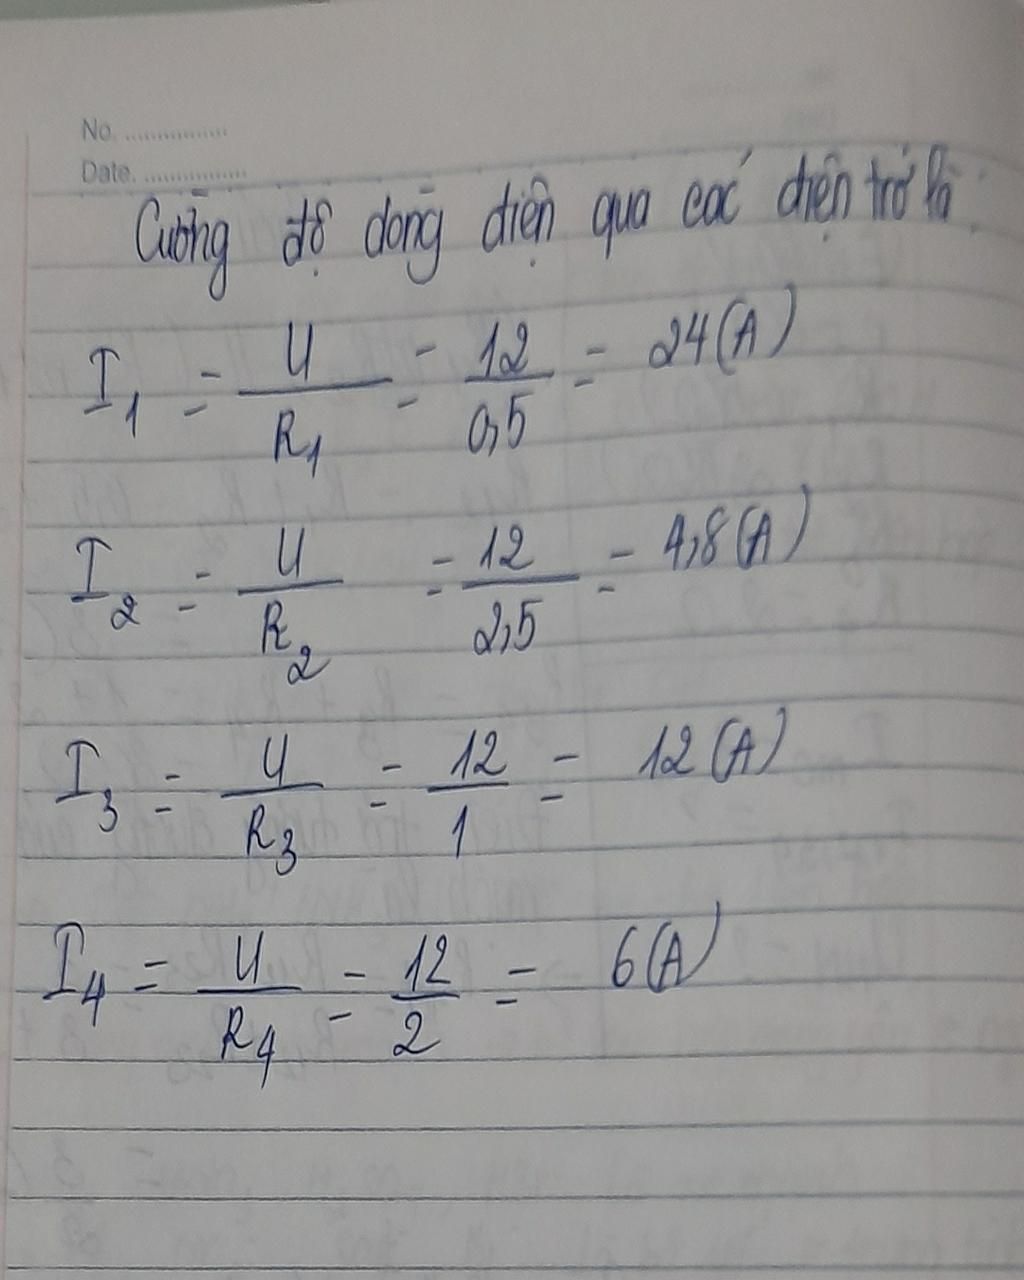 No. ................
Date. ................
Cường độ dòng điện qua các điện trở là
I₁ = U/R₁ = 12/0,5 = 24(A)
I₂ = U/R₂ = 12/2,5 = 4,8(A)
I₃ = U/R₃ = 12/1 = 12(A)
I₄ = U/R₄ = 12/2 = 6(A)